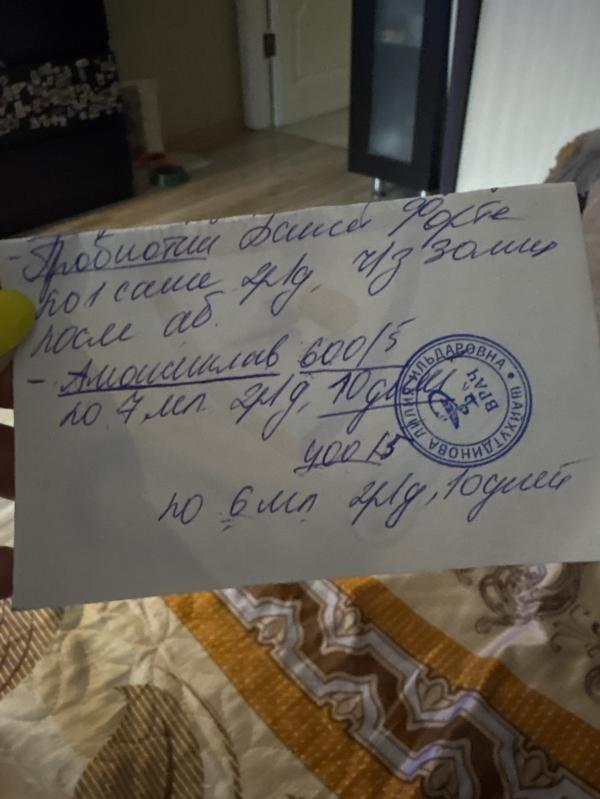 - Пробиотик Форте
по 1 саше 2р/д, ч/з 30 мин
после аб.
- Амоксиклав 600/5
по 7 мл 2р/д, 10 дней
400/5
по 6 мл 2р/д, 10 дней
ШАЙХУТДИНОВА ЛИЛИЯ ИЛЬДАРОВНА
ВРАЧ